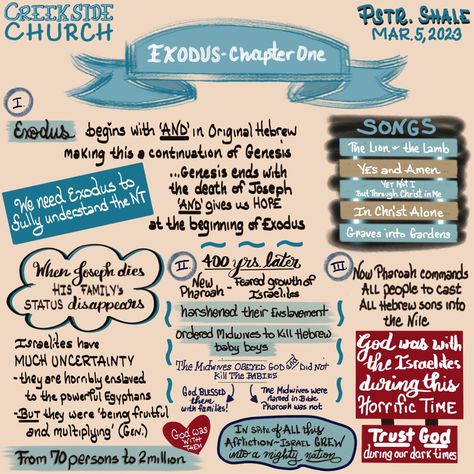 CREEKSIDE
CHURCH
PSTR. SHALE
MAR. 5, 2023
EXODUS - Chapter One
I.
Exodus begins with 'AND' in Original Hebrew
making this a continuation of Genesis
...Genesis ends with
the death of Joseph
'AND' gives us HOPE
at the beginning of Exodus
We need Exodus to
fully understand the NT
SONGS
The Lion & the Lamb
Yes and Amen
Yet Not I
But Through Christ in Me
In Christ Alone
Graves into Gardens
When Joseph dies
HIS FAMILY'S
STATUS disappears
Israelites have
MUCH UNCERTAINTY
- they are horribly enslaved
to the powerful Egyptians
- BUT they were 'being fruitful
and multiplying' (Gen.)
From 70 persons to 2 million
God was
WITH
THEM
II.
400 yrs. later
New
Pharaoh - Feared growth of
Israelites
harshened their Enslavement
ordered Midwives to Kill Hebrew
baby boys
The Midwives OBEYED GOD and Did Not
Kill The Babies
God BLESSED
them
with families!
The Midwives were
named in Bible
Pharoah was not
In spite of ALL this
Affliction - Israel GREW
into a mighty nation
III.
Now Pharoah commands
All people to cast
All Hebrew sons into
the Nile
God was with
the Israelites
during this
Horrific TIME
Trust God
during our dark times